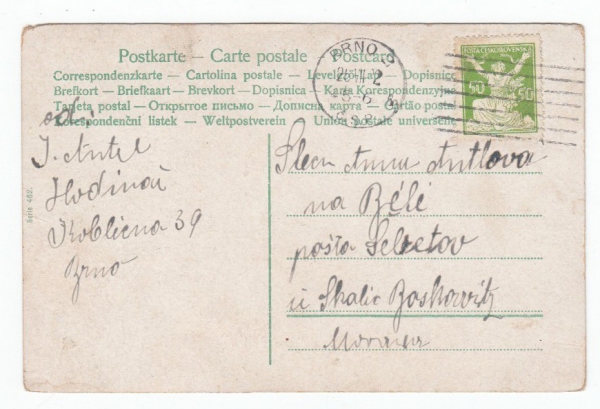 Postkarte — Carte postale — Postcard
Correspondenzkarte — Cartolina postale — Dopisnice
Brefkort — Briefkaart — Brevkort — Dopisnica — Karta Korespondenzyjna
Tarjeta postal — Открытое письмо — Дописна карта — Cartão postal
Korespondenční listek — Weltpostverein — Union postale universelle
BRNO
25 II 2
ČSR
POSTA ČESKOSLOVENSKÁ
50 50
Serie 462.
J. Antl
Hodinář
Koblizna 39
Brno
Slecn Annu Antlova
na Bělé
pošta Letovic
u Skalic Boskowitz